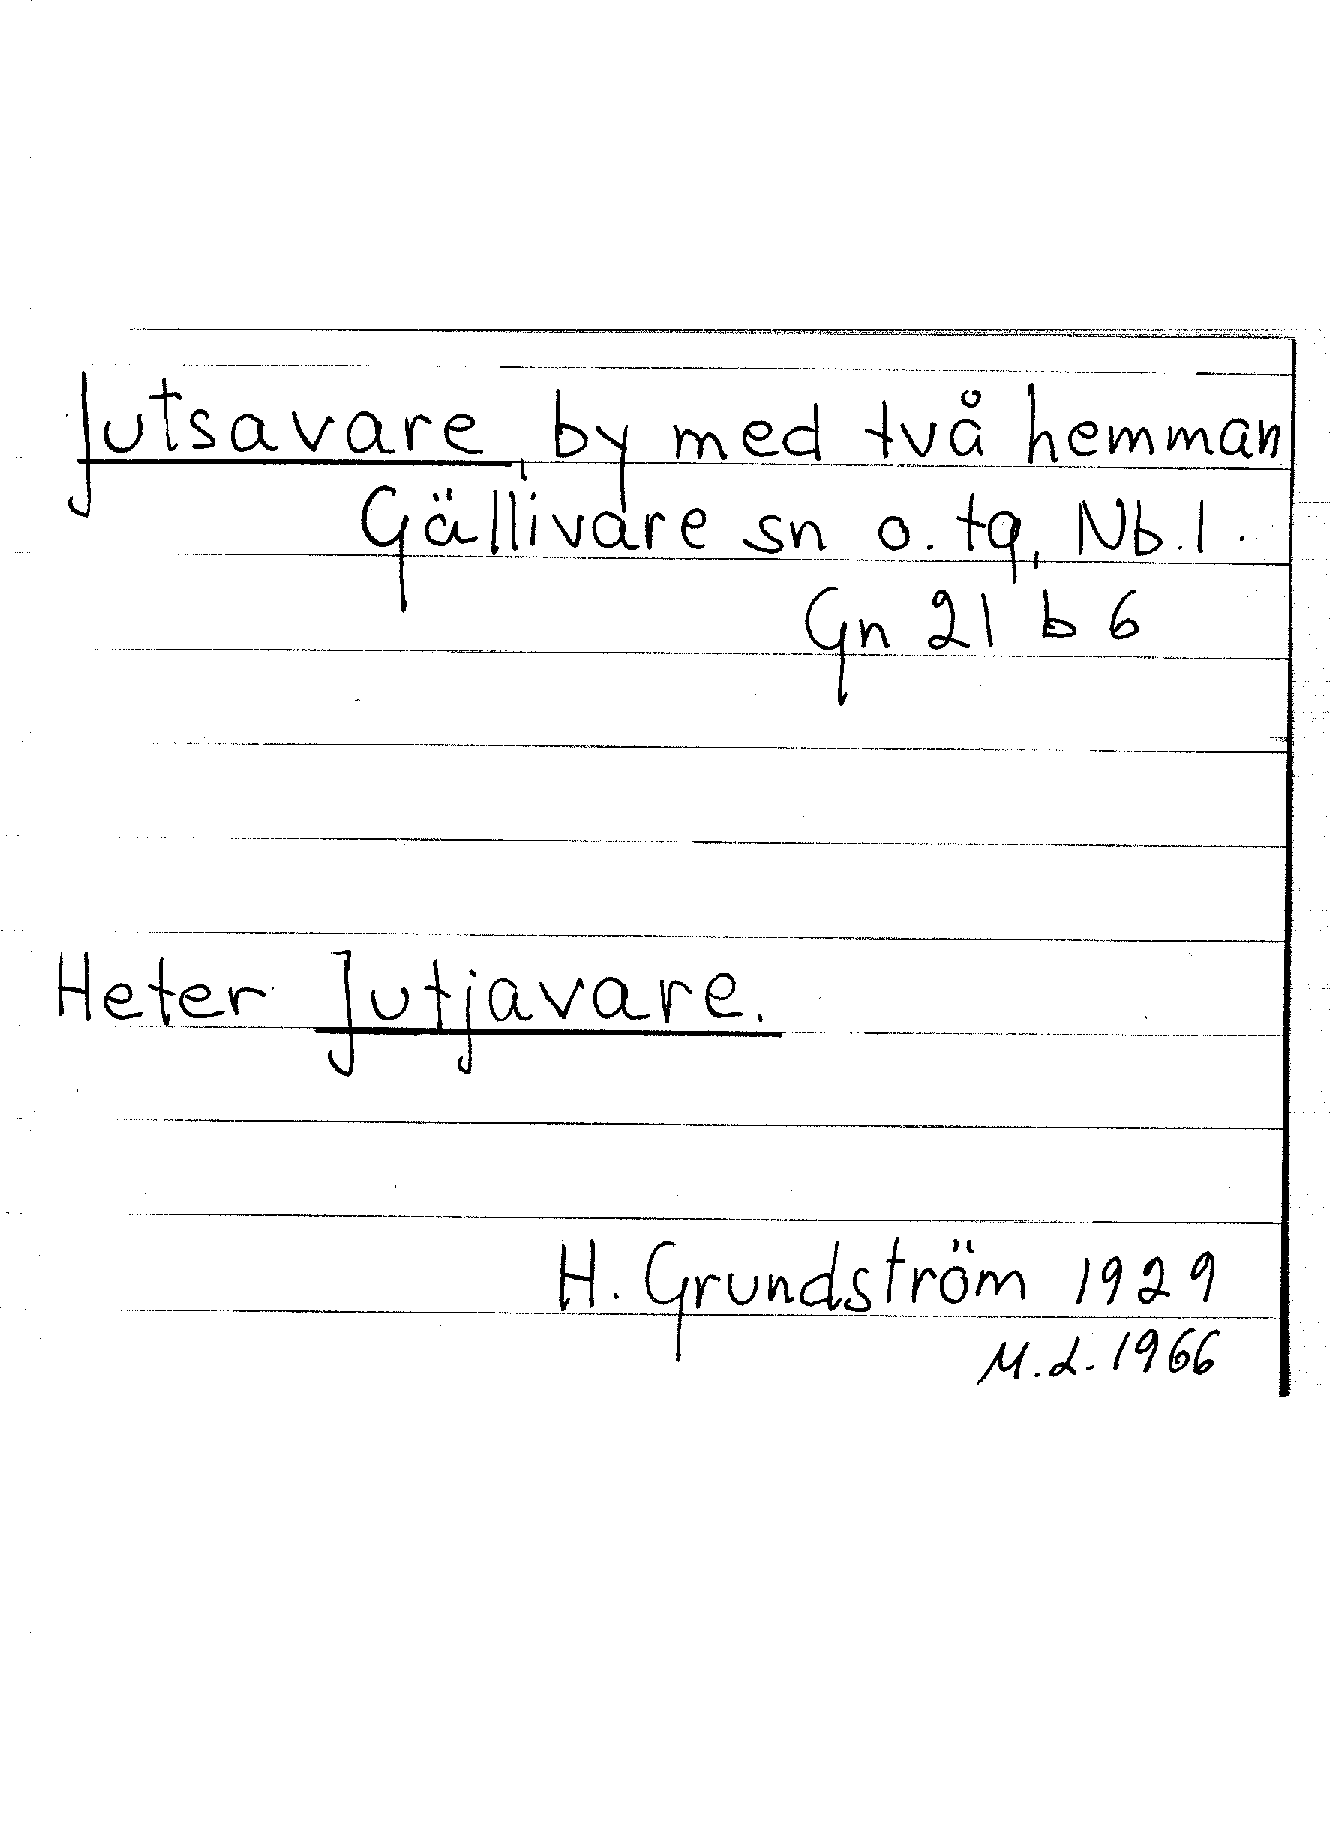 Jutsavare, by med två hemman
Gällivare sn o. tg, Nb. l.
Gn 21 b 6
Heter Jutjavare.
H. Grundström 1929
M.L. 1966